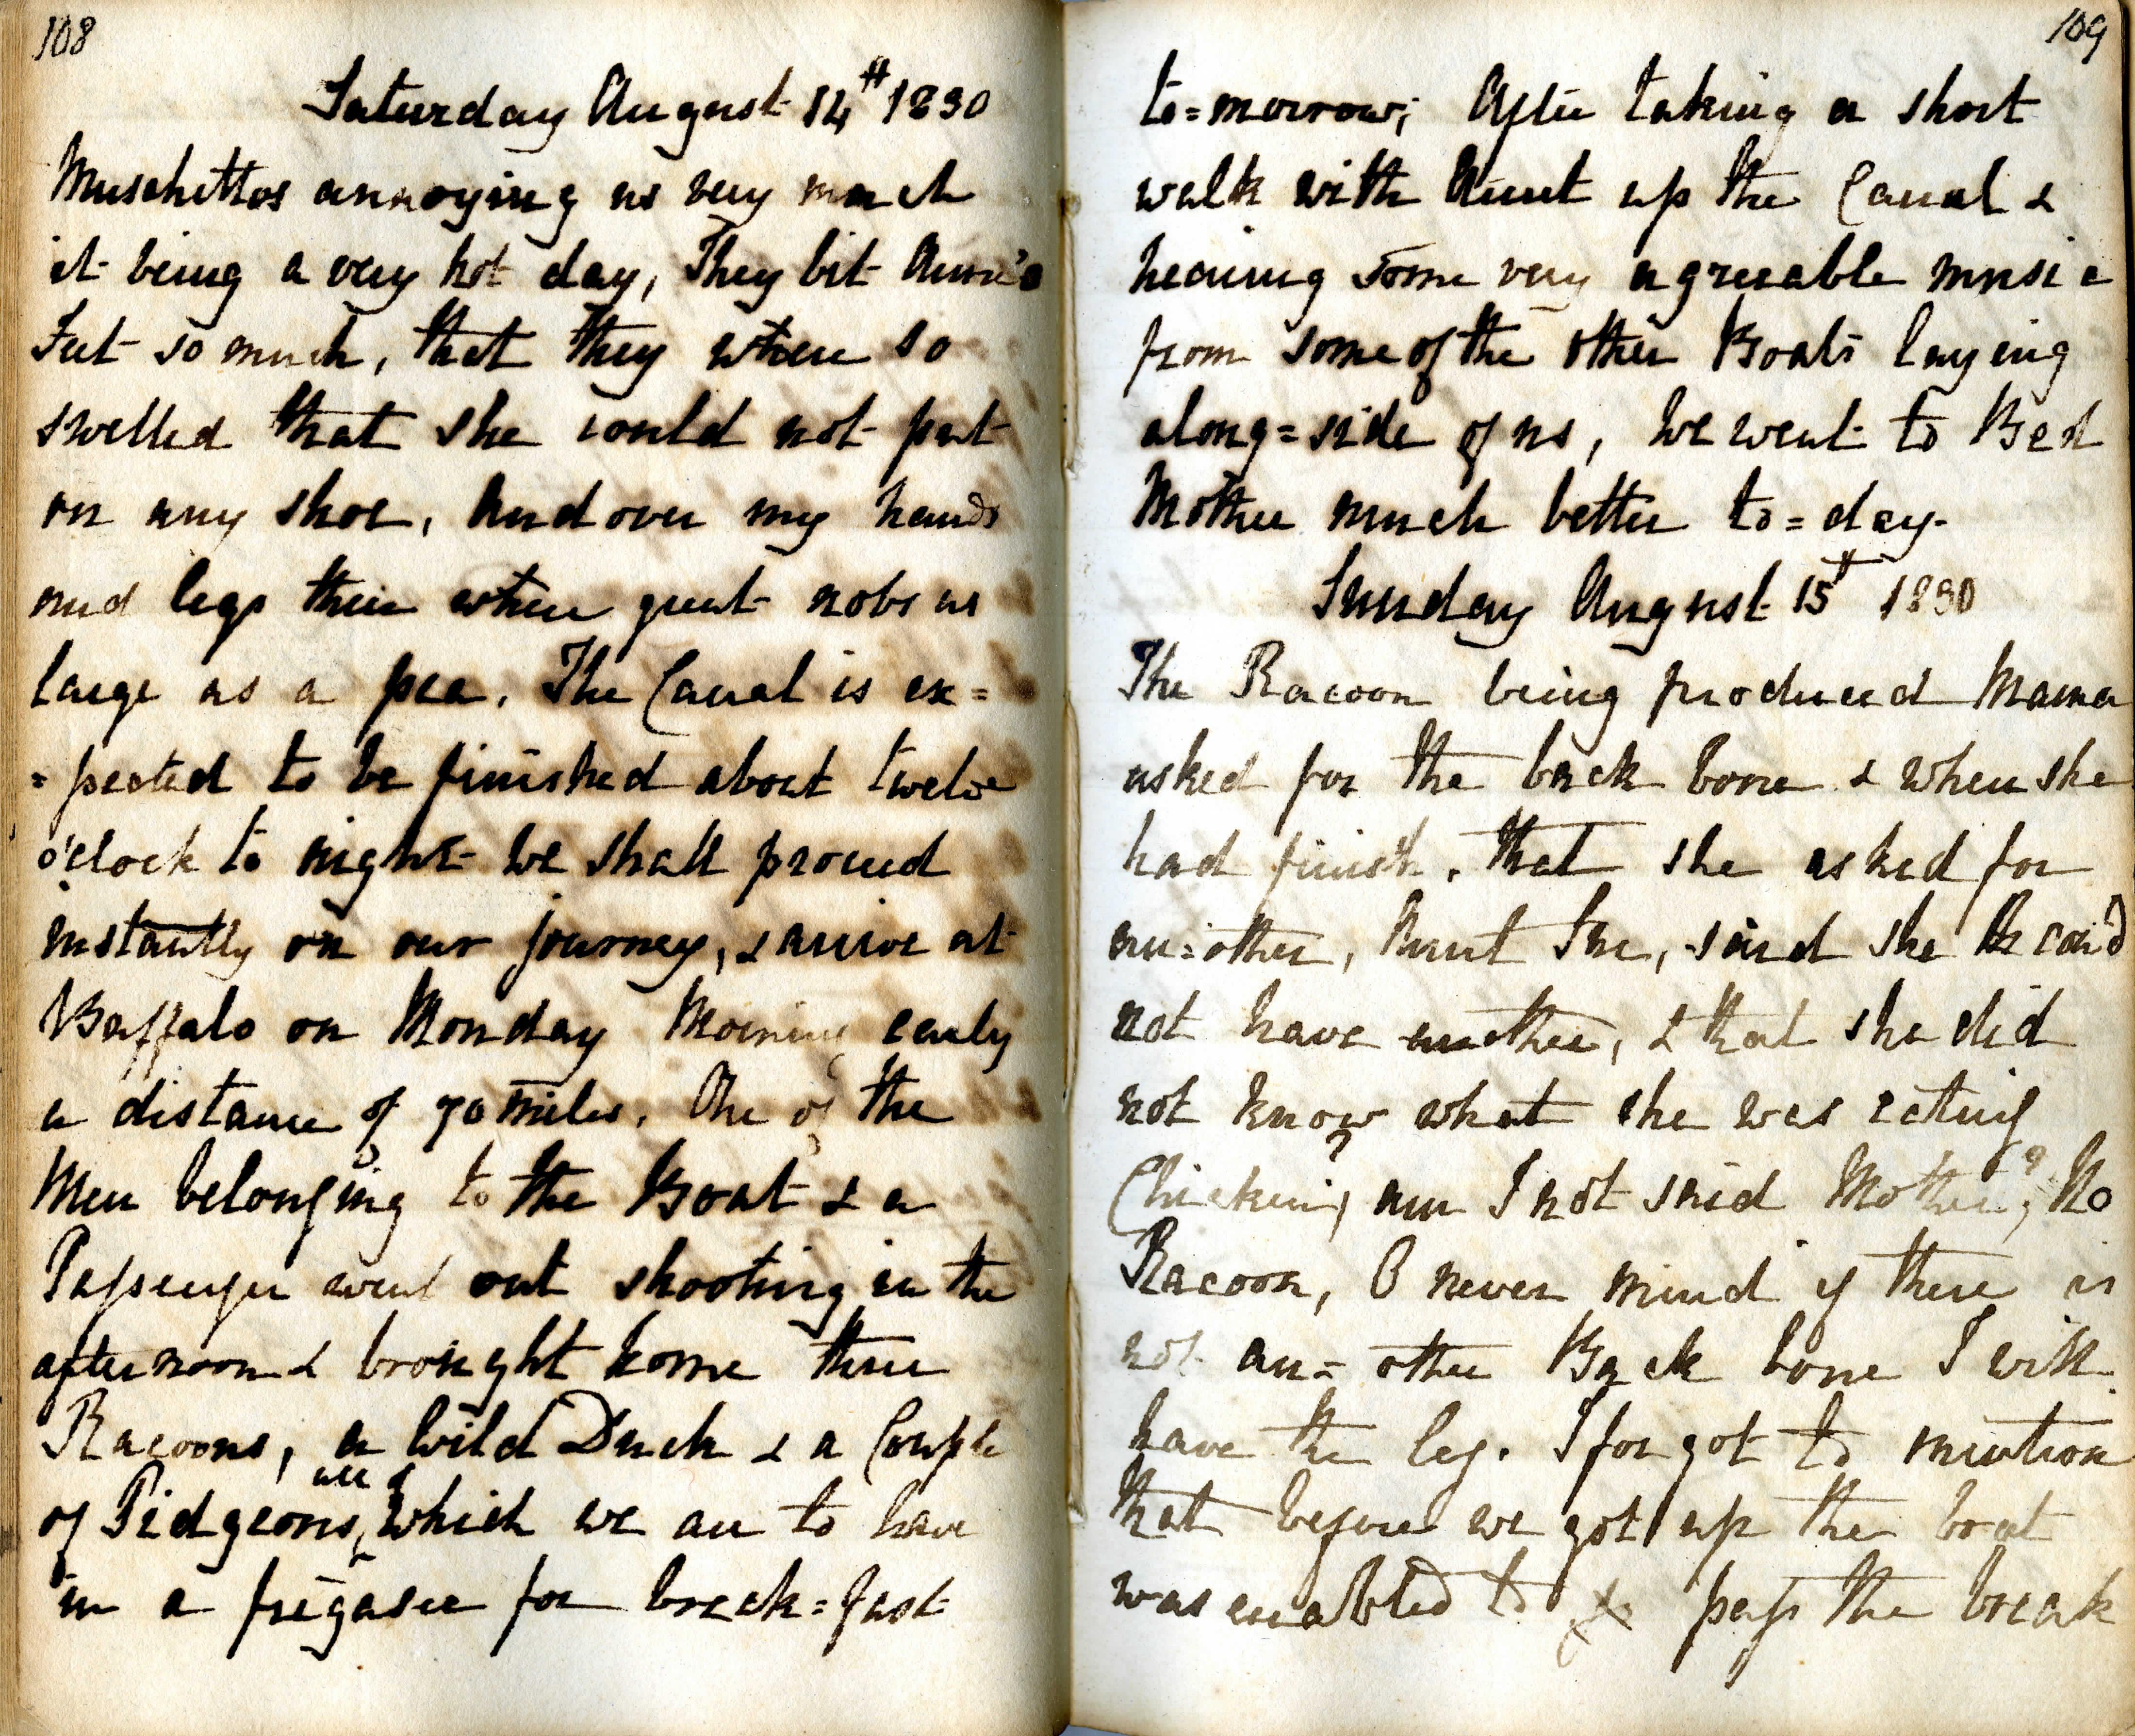 108
Saturday August 14th 1830
Muschettos annoying us very much
it being a very hot day, They bit Anne's
Feet so much, that they where so
swelled that she could not put
on any shoe, And over my hands
and legs their where great nobs as
large as a pea. The Canal is ex=
=pected to be finished about twelve
o'clock to night we shall proceed
instantly on our journey, & arrive at
Buffalo on Monday Morning early
a distance of 70 miles. One of the
Men belonging to the Boat & a
Passenger went out shooting in the
afternoon & brought home three
Racoons, a Wild Duck & a Couple
of Pidgeons, all of which we are to have
in a fregasee for break=fast
109
to=morrow; After taking a short
walk with Aunt up the Canal &
hearing some very agreeable music
from some of the other Boats laying
along=side of us, We went to Bed
Mother much better to=day.
Sunday August 15th 1830
The Racoon being produced Mama
asked for the back bone & when she
had finish. that she asked for
an=other, Aunt Sar, said she coud
not have another, & that she did
not know what she was eating
Chicken? am I not said Mother? No
Racoon, O never mind if there is
not an=other Back bone I will
have the leg. I forgot to mention
that before we got up the boat
was enabled to pass the break